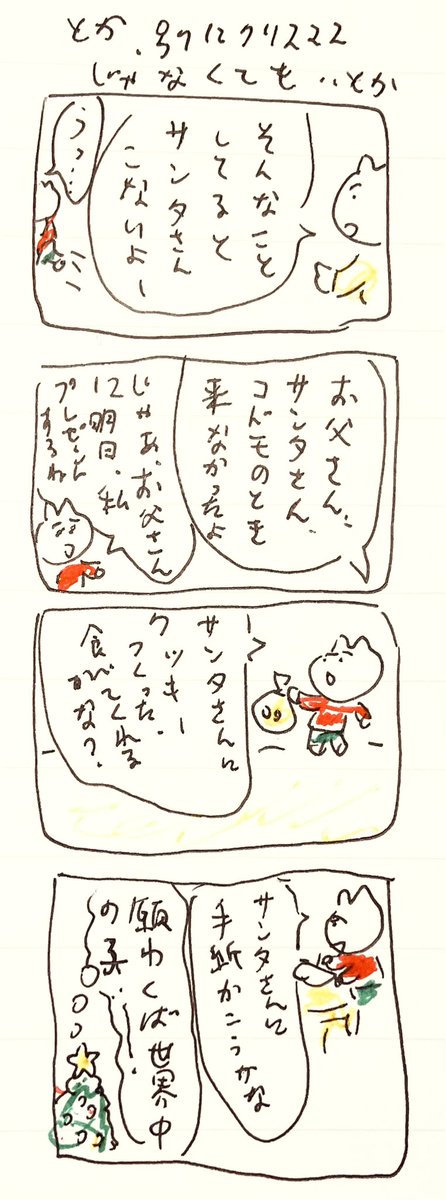 じゃなくても‥とか
そんなこと
してると
サンタさん
こないよー
うっ…
お父さん、
サンタさん
コドモのとき
来なかったよ
じゃあ、お父さん
に明日、私
プレゼント
するね
サンタさんに
クッキー
つくった、
食べてくれる
かな?
サンタさんに
手紙かこうかな
願わくば世界中
の子